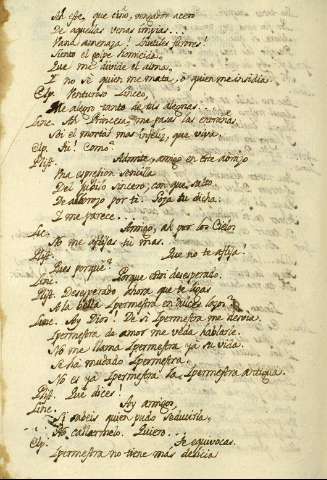 Ah ese, que ciño, vengador acero
De aquellas venas impias...
Vana amenaza! Inutiles furores!
Siento el golpe homicida,
Que me divide el alma.
Y no sé quien me mata, o quien me insidia.
Elp. Venturoso Linceo,
Me alegro tanto de tus alegrias...
Linc. Ah Princesa! me pasas las entrañas.
Soi el mortal mas infeliz, que viva.
Elp. Tú! Como?
Plist. Adonte, amigo en este abrazo
Una espresion sencilla
Del jubilo sincero, con que salto
De alborozo por ti. Goza tu dicha.
Y me parece...
Lic. Amigo, ah por los Cielos
No me aflijas tu mas.
Plist. Que no te aflija!
Pues porque?
Linc. Porque estoi desesperado.
Plist. Desesperado ahora que te ligas
A la bella Ipermestra en dulce lazo?
Linc. Ay Dios! De si Ipermestra me desvia.
Ipermestra de amor me veda hablarle.
No me llama Ipermestra ya su vida.
Se ha mudado Ipermestra.
No es ya Ipermestra la Ipermestra antigua.
Plist. Que dices!
Linc. Ay amigos,
Si sabéis quien pudo seducirla,
No callarmelo. Quiero...
Elp. Te equivocas.
Ipermestra no tiene mas delicia